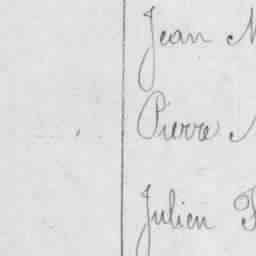 Jean
Pierre
Julien